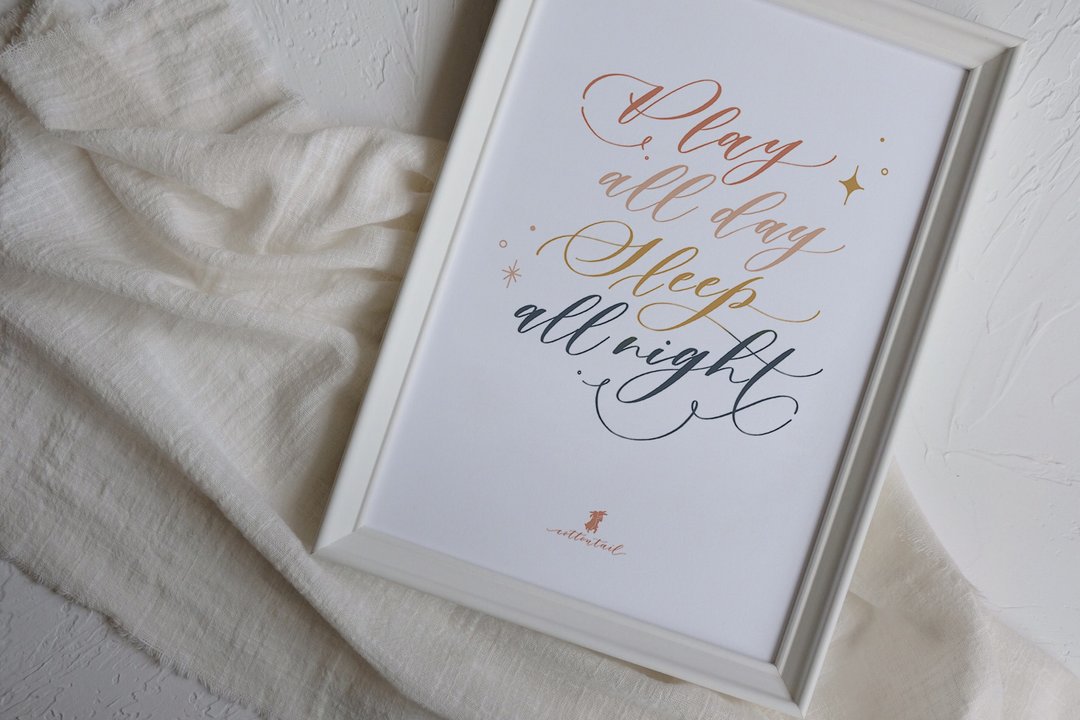 Play
all day
Sleep
all night
cottontail